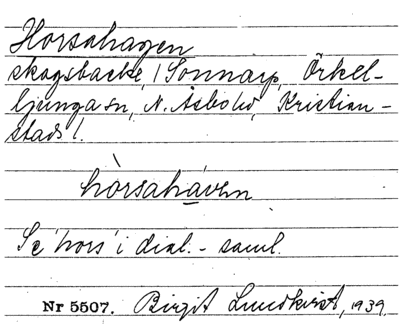 Horsahagen
skogsbacke, i Sonnarp, Örkel-
ljunga sn, N. Åsbo hd, Kristian-
stads l.
hòrsahávən
Se 'hors' i dial.-saml.
Nr 5507. Birgit Lundkvist, 1939.